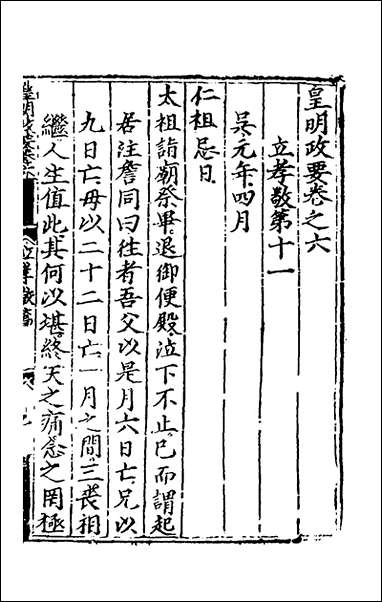 皇明政要卷之六
立孝敬第十一
吳元年四月
仁祖忌日
太祖詣廟祭畢退御便殿泣下不止已而謂起
居注詹同曰往者吾父以是月六日亡兄以
九日亡母以二十二日亡一月之間三喪相
繼人生值此其何以堪終天之痛念之罔極